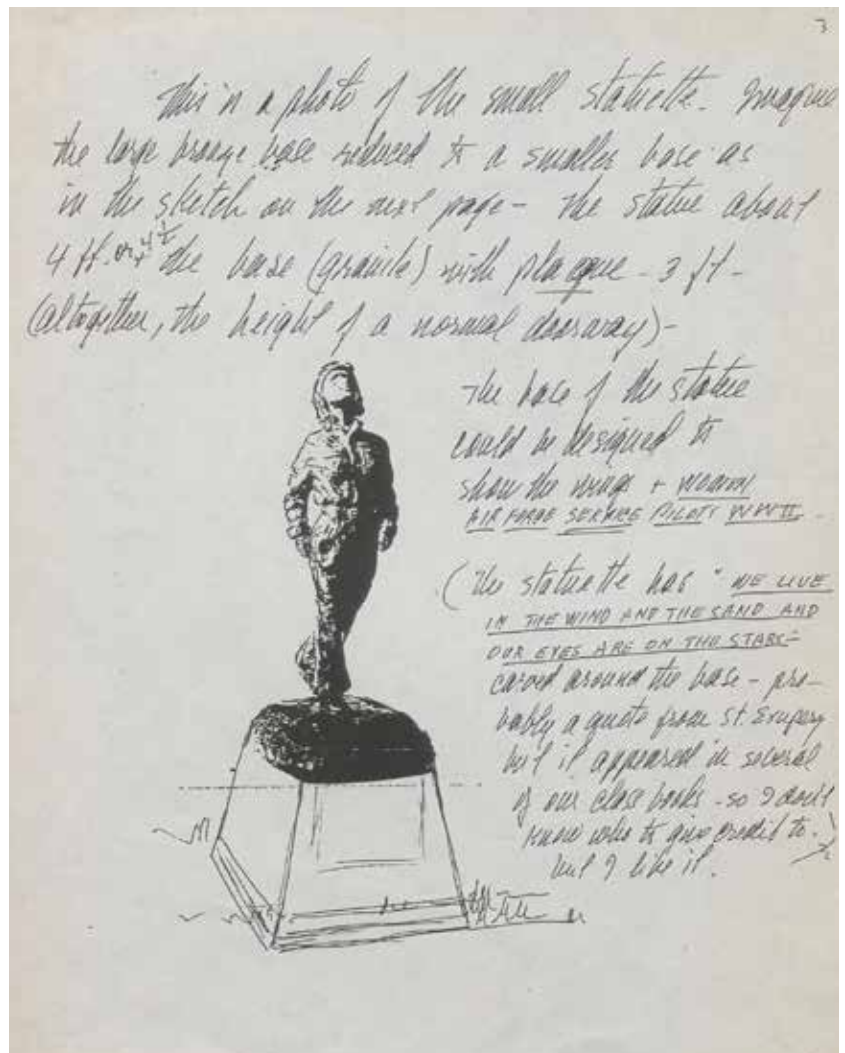 3
This is a photo of the small statuette. Imagine
the large bronze base reduced to a smaller base as
in the sketch on the next page - the statue about
4 ft. or 4 1/2 the base (granite) with plaque - 3 ft -
(altogether, the height of a normal doorway) -
The base of the statue
could be designed to
show the wings + WOMEN
AIR FORCE SERVICE PILOTS WWII.
(The statuette has "WE LIVE
IN THE WIND AND THE SAND AND
OUR EYES ARE ON THE STARS"
carved around the base - pro-
bably a quote from St. Exupery
but it appeared in several
of our class books - so I don't
know who to give credit to.
but I like it.